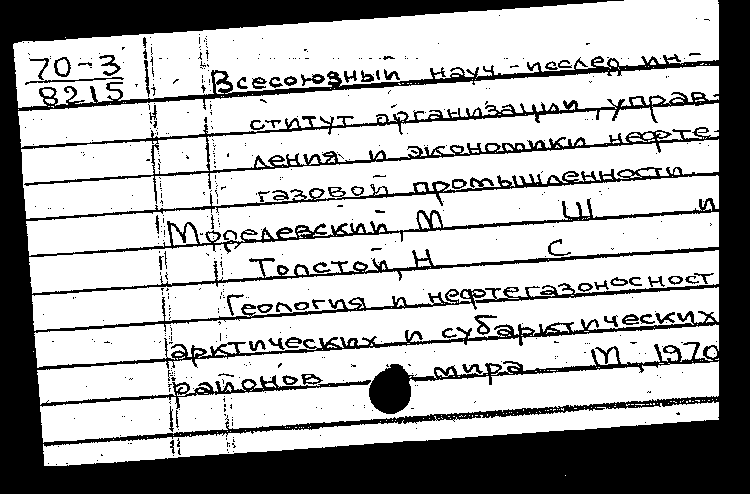 70-3
8215
Всесоюзный науч.-исслед. ин-
ститут организации, управ-
ления и экономики нефте-
газовой промышленности.
Моделевский, М Ш и
Толстой, Н С
Геология и нефтегазоносност
арктических и субарктических
районов мира М, 1970